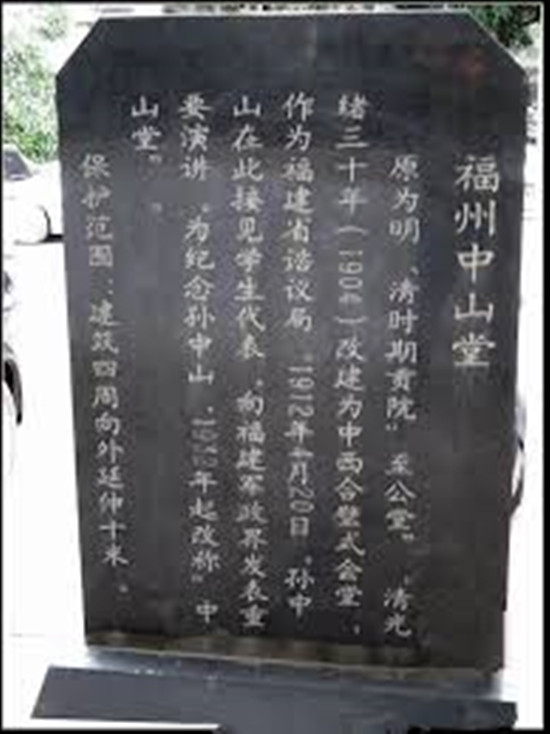 福州中山堂
原为明、清时期贡院“至公堂”，清光
绪三十年（1904）改建为中西合璧式会堂，
作为福建省谘议局。1912年4月20日，孙中
山在此接见学生代表，向福建军政界发表重
要演讲。为纪念孙中山，19年起改称“中
山堂”。
保护范围：建筑四周向外延伸十米。